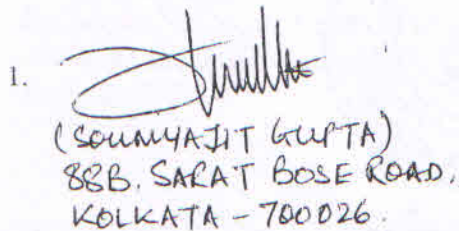 1.
(SOUMYAJIT GUPTA)
88B, SARAT BOSE ROAD,
KOLKATA - 700026.